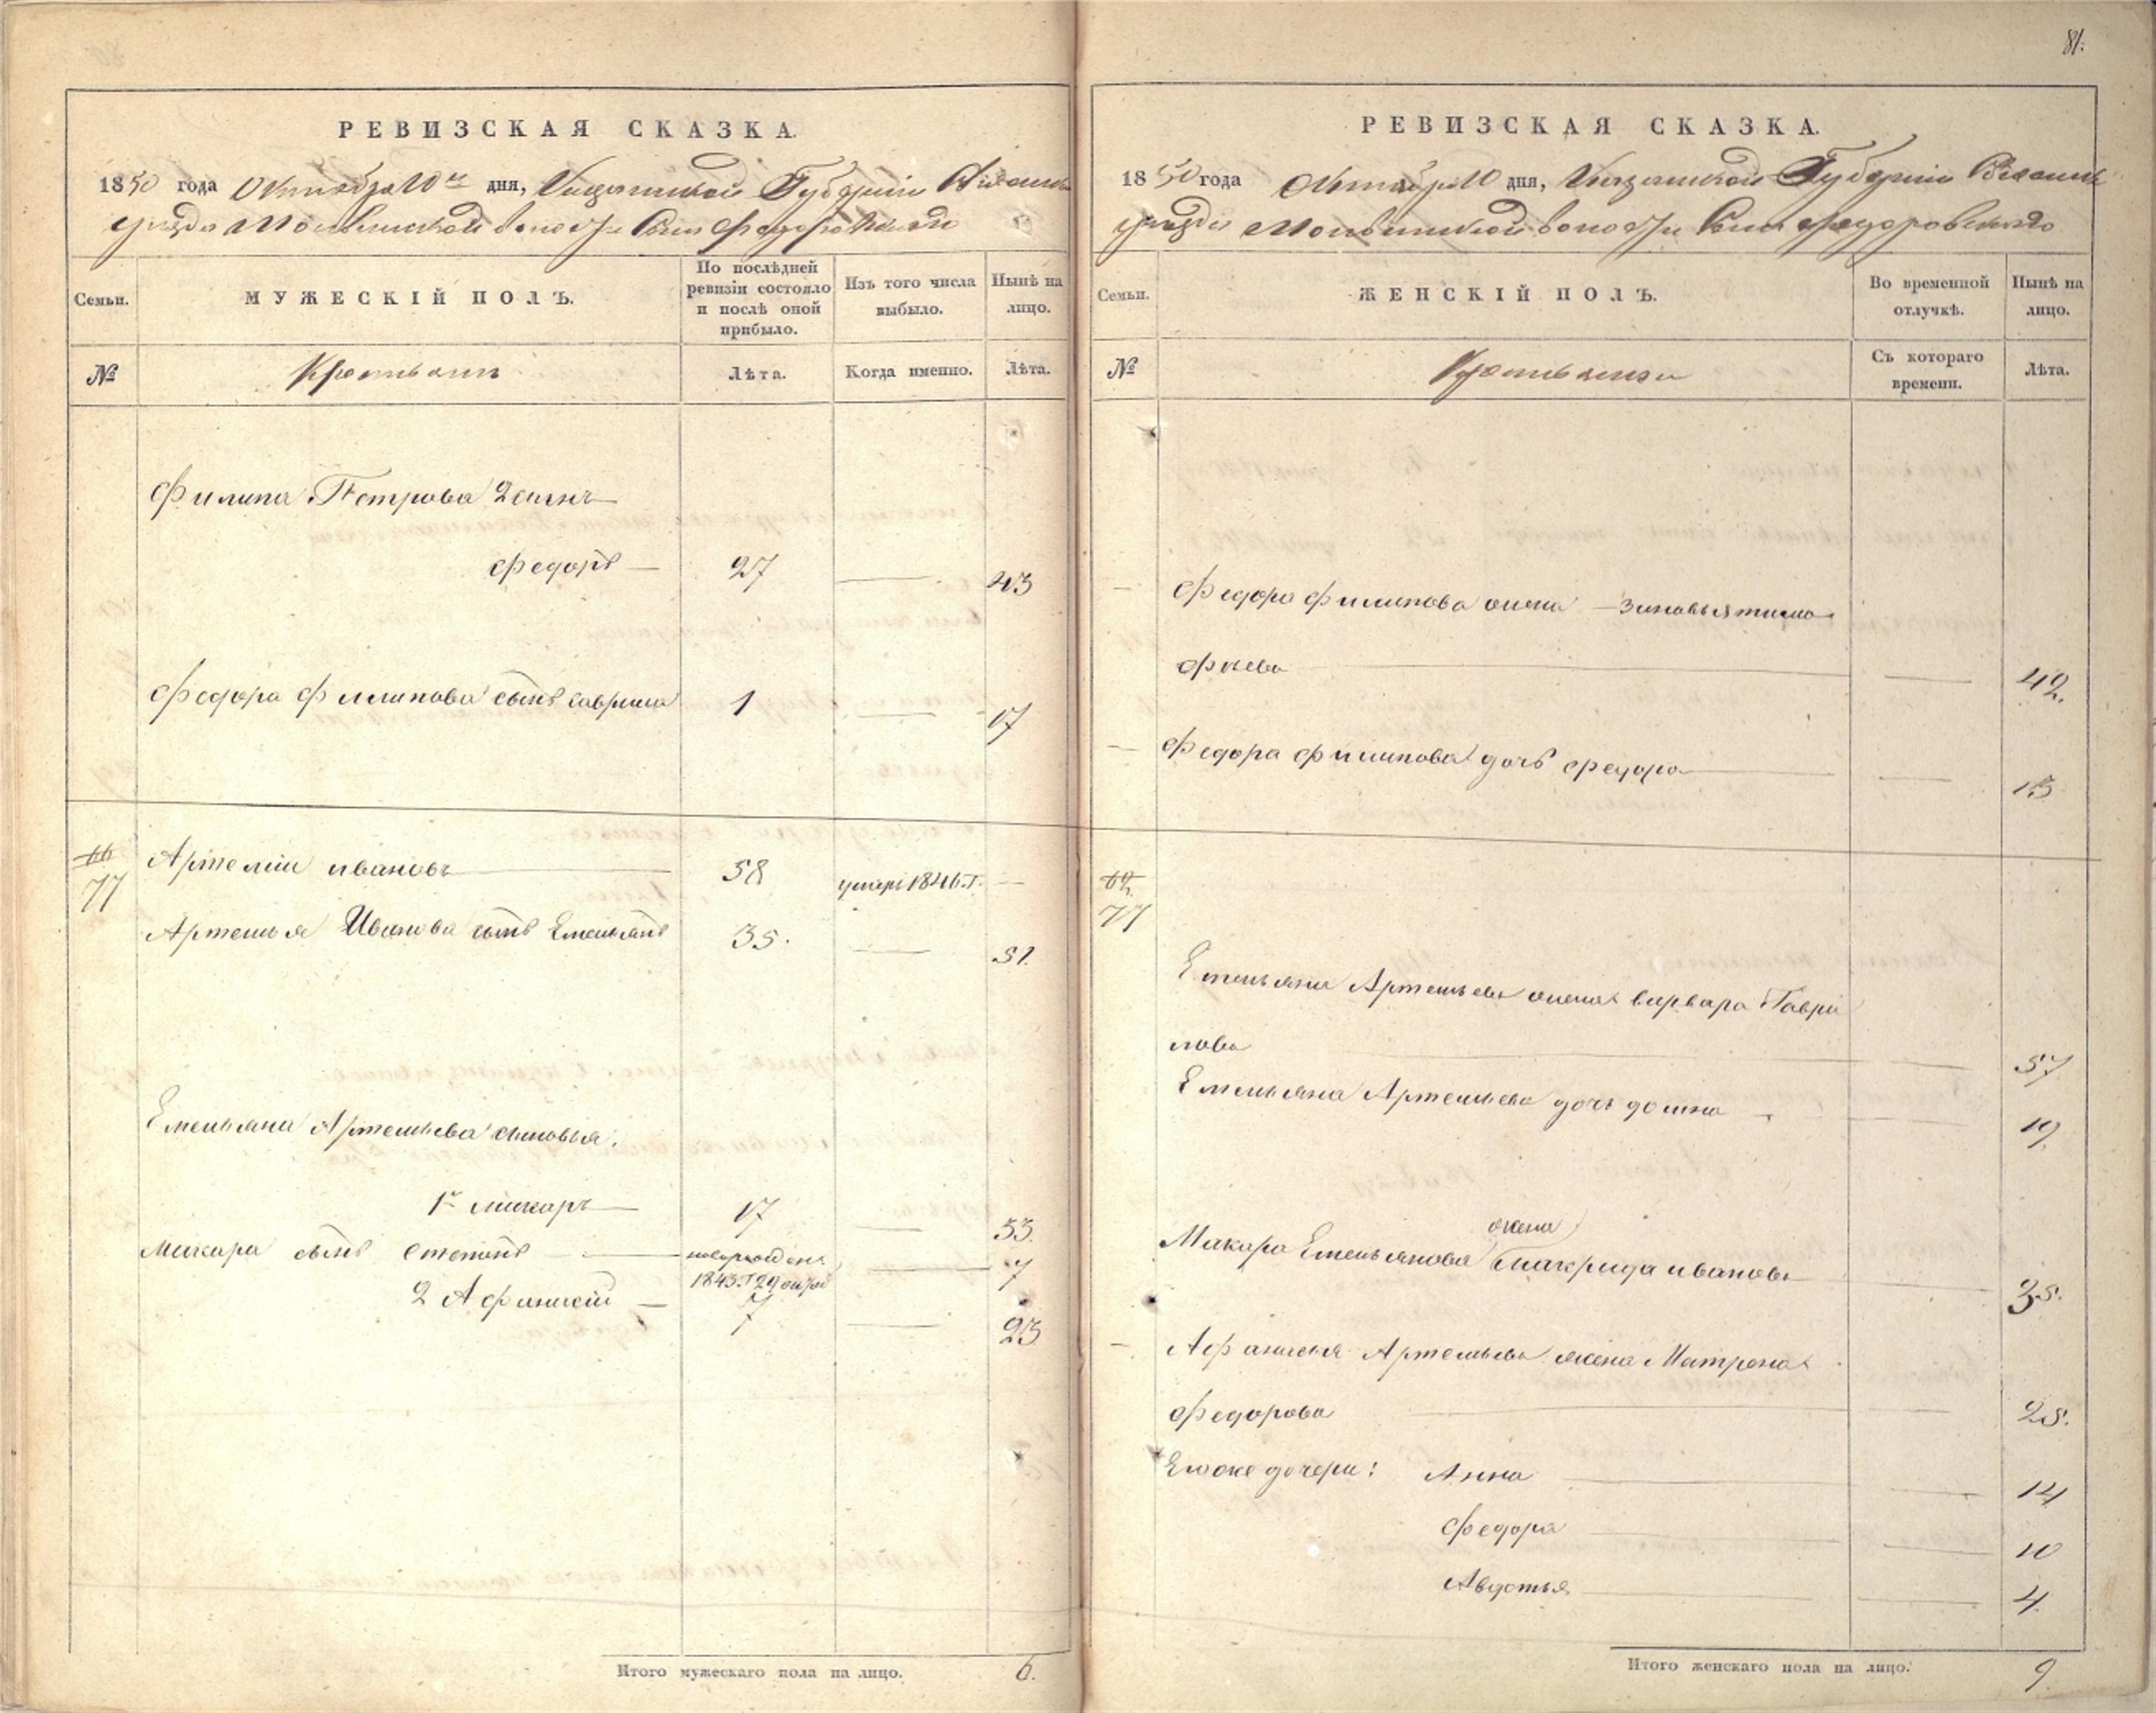 81.
РЕВИЗСКАЯ СКАЗКА.
1850 года Октября 10го дня, Казанской Губерніи
уезда волости Села Федоровскаго
Семьи.
МУЖЕСКІЙ ПОЛЪ.
По послѣдней ревизіи состояло и послѣ оной прибыло.
Изъ того числа выбыло.
Нынѣ на лицо.
№
Крестьяне
Лѣта.
Когда именно.
Лѣта.
Филипа Петрова 2 сынъ
Федоръ — 27 — 43
Федора Филипова сынъ Гаврила 1 — 17
66
77
Артемій Ивановъ — 58 умеръ 1846.г. —
Артемья Иванова сынъ Емельянъ 35. — 51.
Емельяна Артемьева сыновья.
1й Макаръ — 17 — 33.
Макара сынъ Степанъ — новорожденъ — 7
1843.г 29
2 Афанасій — 7 — 23
Итого мужескаго пола на лицо. 6.
РЕВИЗСКАЯ СКАЗКА.
1850 года Октября 10 дня, Казанской Губерніи
уезда волости Села Федоровскаго
Семьи.
ЖЕНСКІЙ ПОЛЪ.
Во временной отлучкѣ.
Нынѣ на лицо.
№
Крестьянки
Съ котораго времени.
Лѣта.
— Федора Филипова жена — Зиновья Тимо
фѣева — 42.
— Федора Филипова дочь Федора — 13
62.
77
Емельяна Артемьева жена Варвара Гаври
лова — 57
Емельяна Артемьева дочь Домна — 19.
жена
Макара Емельянова Макрида Иванова — 35.
— Афанасья Артемьева жена Матрена
Федорова — 25.
Егоже дочери: Анна — 14
Федора — 10
Авдотья — 4.
Итого женскаго пола на лицо. 9.